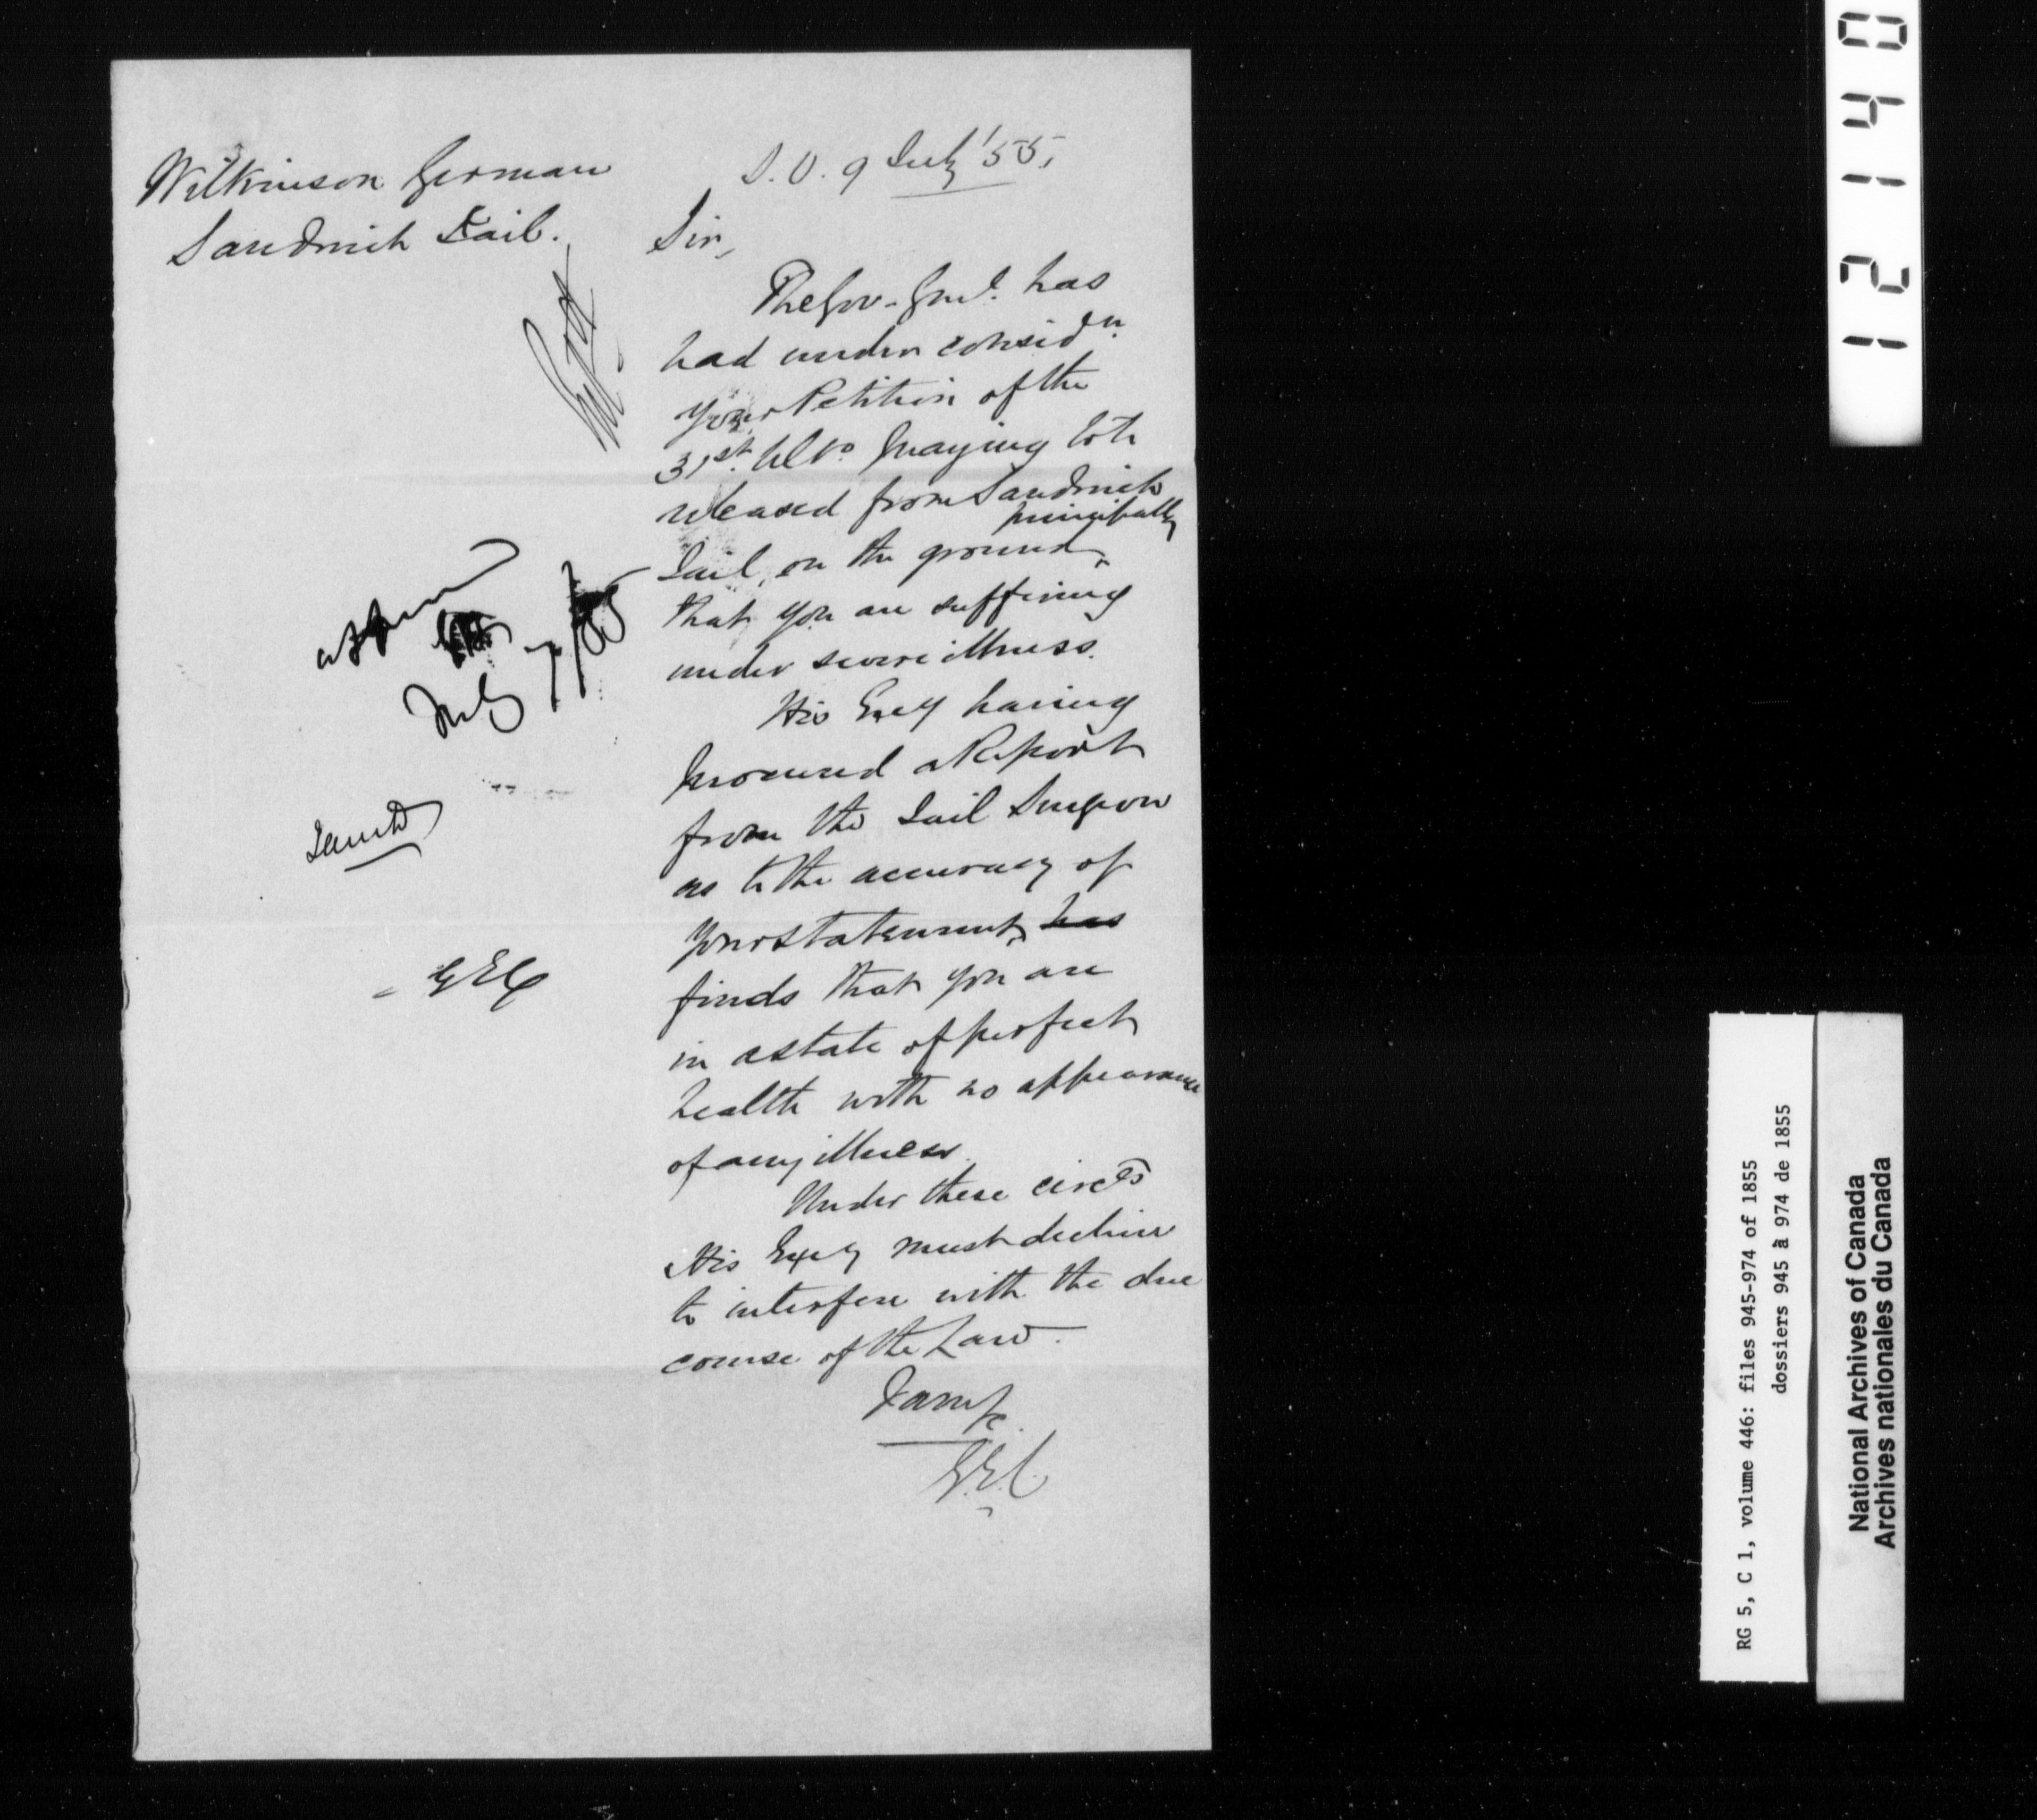 Wilkinson German
Sandwich Jail.
S. O. 9 July '55,
Sir,
The Gov-Genl. has
had under considn.
your Petition of the
31st. Ulto. praying to be
released from Sandwich
principally
Jail, on the ground
that you are suffering
under severe illness.
His Excy having
procured a Report
from the Jail Surgeon
as to the accuracy of
your statement, has
finds that you are
in a state of perfect
health with no appearance
of any illness.
Under these circes
His Excy must decline
to interfere with the due
course of the Law.
I am &c
G.E.C.
July 7/55
GEC
12140
RG 5, C 1, volume 446: files 945-974 of 1855
dossiers 945 à 974 de 1855
National Archives of Canada
Archives nationales du Canada